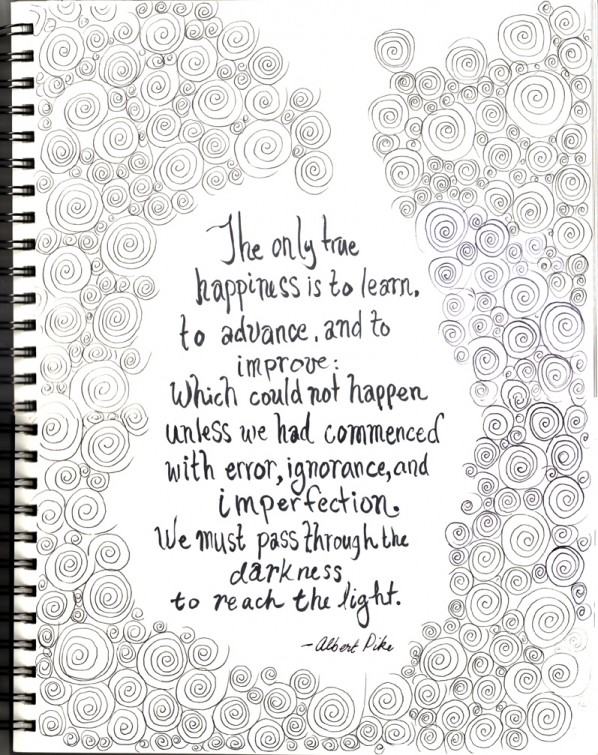 The only true
happiness is to learn,
to advance, and to
improve:
Which could not happen
unless we had commenced
with error, ignorance, and
imperfection.
We must pass through the
darkness,
to reach the light.
-Albert Pike